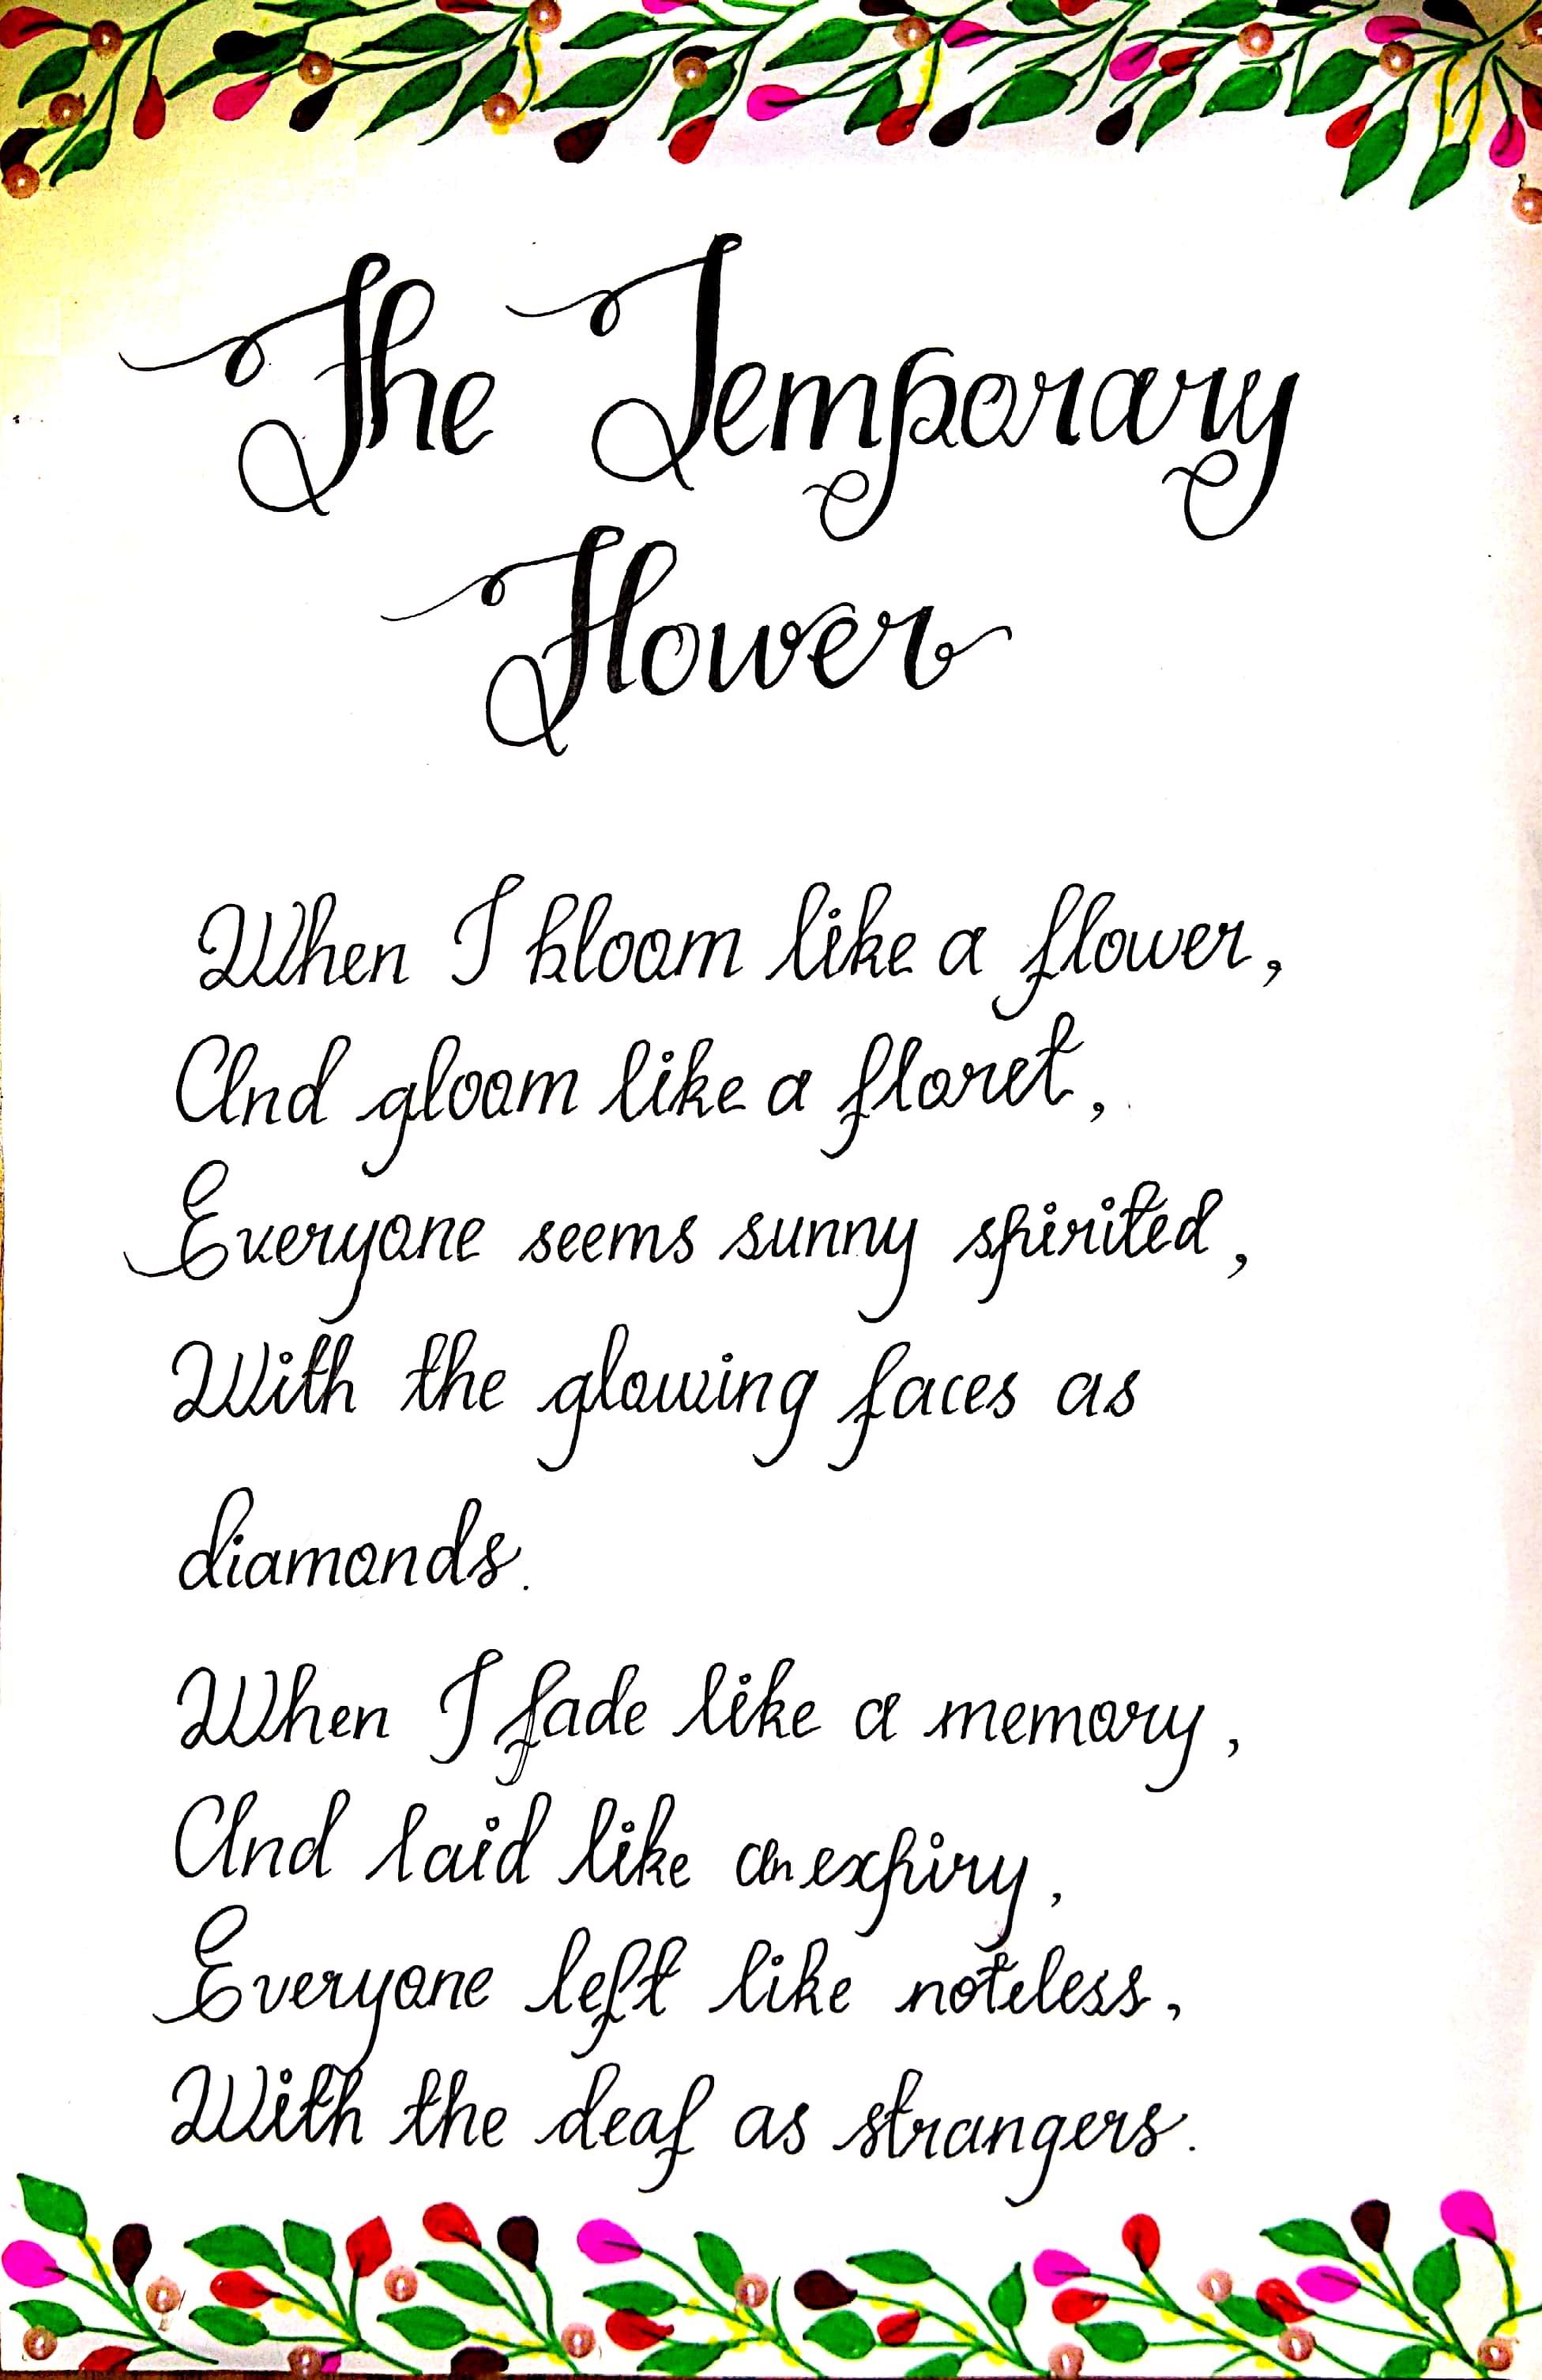 The Temporary
Flower
When I bloom like a flower,
And gloom like a floret,
Everyone seems sunny spirited,
With the glowing faces as
diamonds.
When I fade like a memory,
And laid like an expiry,
Everyone left like noteless,
With the deaf as strangers.